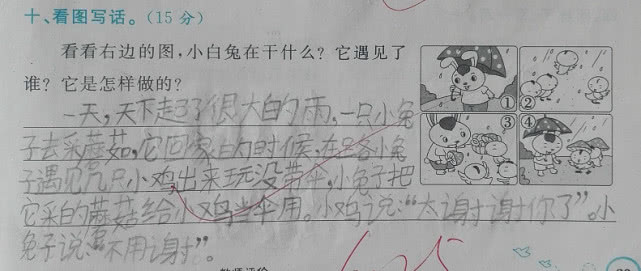 十、看图写话。(15分)
看看右边的图,小白兔在干什么?它遇见了
谁?它是怎样做的?
① ②
③ ④
一天,天下起了很大的雨,一只小兔
子去采蘑茹,它回家的时候,在路小兔
子遇见几只小鸡出来玩没带伞,小兔子把
它采的蘑菇给小鸡当伞用。小鸡说:“太谢谢你了”。小
兔子说:“不用谢”。